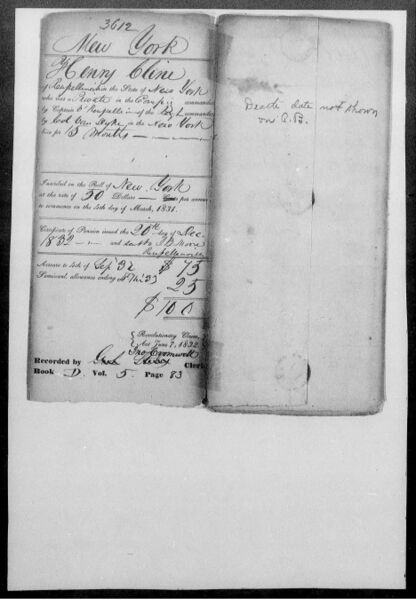 3612
New York
Henry Cline
of Rensselaer in the State of New York
who was a Private in the Comp commanded
by Captain of the Regt commanded
by Col Van Dyke in the New York
line for 15 months
Inscribed on the Roll of New York
at the rate of 50 Dollars Cents per annum
to commence on the 4th day of March, 1831.
Certificate of Pension issued the 20th day of Dec
1832 and
Arrears to 4th of Sep 32 $ 75
Semi-anl. allowance ending 4 Mch 33 25
$ 100
Revolutionary Claim,
Act June 7, 1832
Recorded by Clerk
Book D. Vol. 5. Page 83
Death date not shown
on C.B.